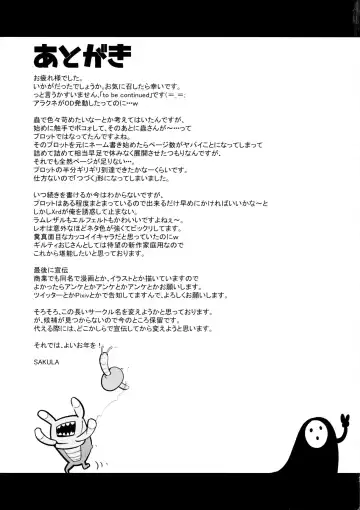 あとがき
お疲れ様でした。
いかがだったでしょうか。お気に召したら幸いです。
っと言うかすいません、「to be continued」です(＝_＝;
アラクネがOD発動したってのに…w
蟲で色々苛めたいなーとか考えてはいたんですが、
始めに触手でボコォして、そのあとに蟲さんが～…って
プロットではなってたんですよね。
そのプロットを元にネーム書き始めたらページ数がヤバイことになってしまって
詰めて詰めて相当早足で休みなく展開させたつもりなんですが、
それでも全然ページが足りない…。
プロットの半分ギリギリ到達できたかなーくらいです。
仕方ないので「つづく」形になってしまいました。
いつ続きを書けるか今はわからないですが、
プロットはある程度まとまっているので出来るだけ早めにかければいいかな～と
しかしXrdが俺を誘惑して止まない。
ラムレザルもエルフェルトもかわいいですよねぇ～。
レオが意外とほどネタ色が強くてビックリしてます。
糞真面目なカッコイイキャラだと思っていたのにw
ギルティおじさんとしては待望の新作家庭用なので
これから堪能したいと思っております。
最後に宣伝
商業でも同名で漫画とか、イラストとか描いていますので
よかったらアンケとかアンケとかアンケとかお願いします。
ツイッターとかPixivとかで告知してますんで、よろしくお願いします。
そろそろ、この長いサークル名を変えようかと思っております。
が、候補が見つからないので今のところ保留です。
代える際には、どこかしらで宣伝してから変えようと思います。
それでは、よいお年を！
SAKULA